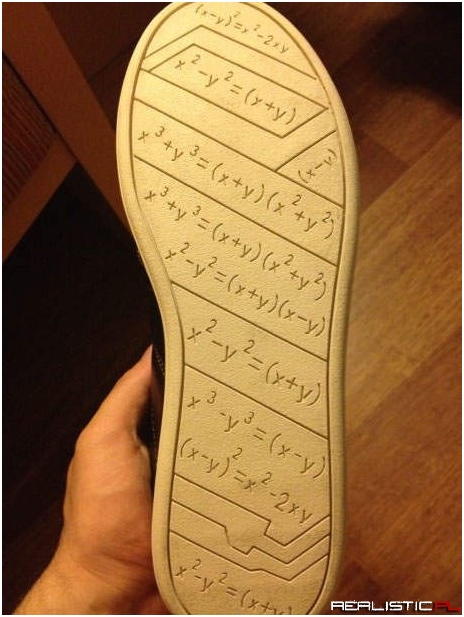 (x-y)²=x²-2xy
x²-y²=(x+y)
(x-y)
x³+y³=(x+y)(x²+y²)
x³+y³=(x+y)(x²+y²)
x²-y²=(x+y)(x-y)
x²-y²=(x+y)
x³-y³=(x-y)
(x-y)²=x²-2xy
x²-y²=(x+y)
REALISTIC.PL